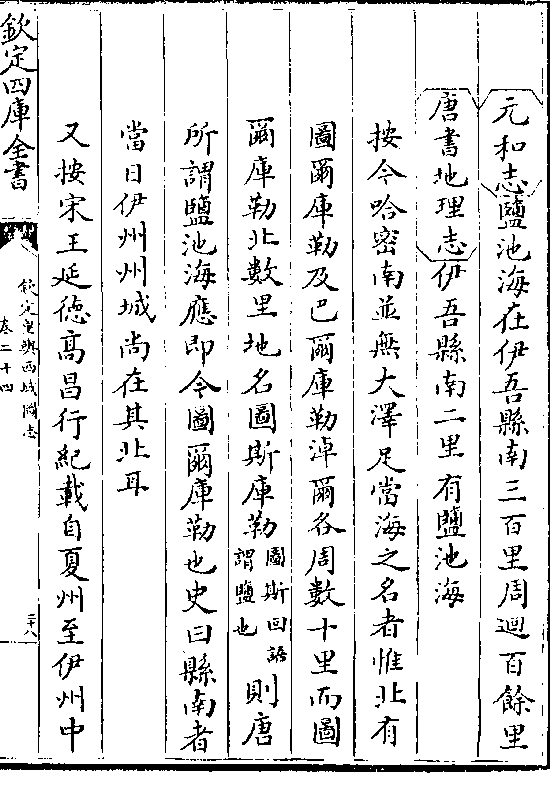 元和志鹽池海在伊吾縣南三百里周迴百餘里
唐書地理志伊吾縣南二里有鹽池海
按今哈密南並無大澤足當海之名者惟北有
圖爾庫勒及巴爾庫勒淖爾各周數十里而圖
爾庫勒北數里地名圖斯庫勒圖斯回語謂鹽也則唐
所謂鹽池海應即今圖爾庫勒也史曰縣南者
當日伊州州城尚在其北耳
又按宋王延德髙昌行紀載自夏州至伊州中
欽定四庫全書
欽定皇輿西域圖志
卷二十四
二十八